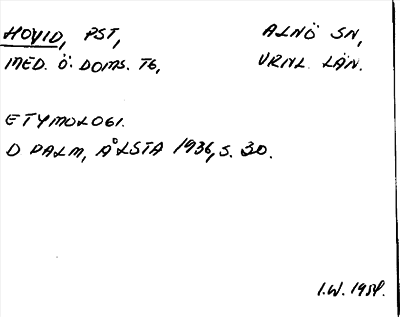 HOVID, PST, ALNÖ SN,
MED. Ö. DOMS. TG, VRNL. LÄN.
ETYMOLOGI.
D PALM, ÅLSTA 1936, S. 30.
I.W. 1954.